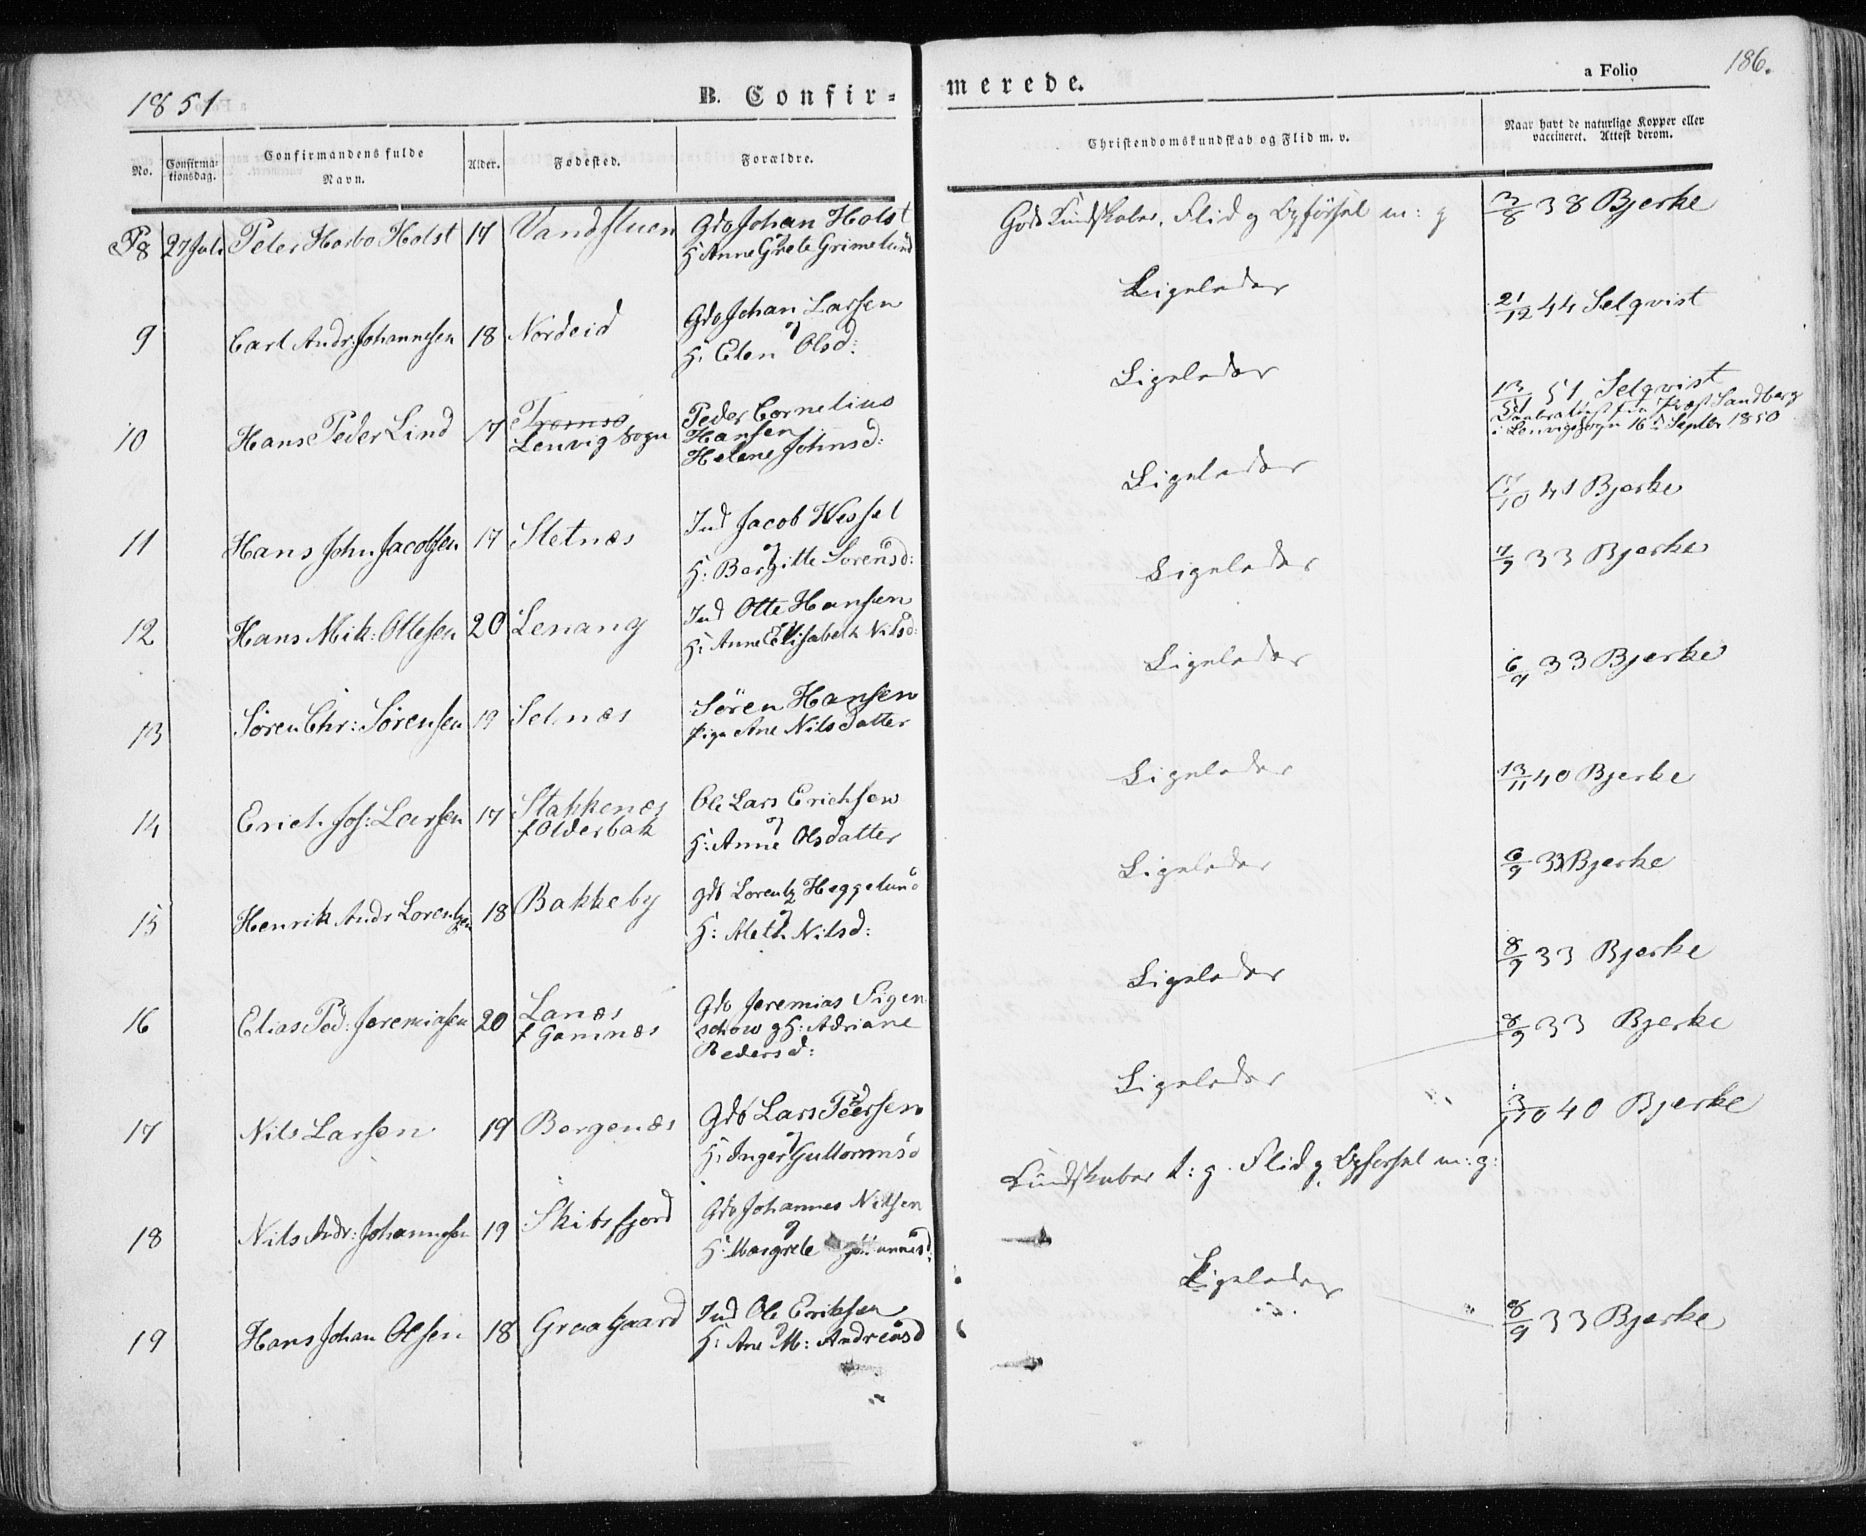 1851
B. Confir-
merede.
a Folio
186.
No.
Confirma-
tionsdag.
Confirmandens fulde
Navn.
Alder.
Fødested.
Forældre.
Christendomskundskab og Flid m. v.
Naar havt de naturlige Kopper eller
vaccineret. Attest derom.
8 27 Juli Peter Harbo Holst 17 Vandstuen Gdb Johan Holst
H: Anne Grete Grimelund
Gode Kundskaber, Flid og Opførsel m: g
3/8 38 Bjerke
9 Carl Andr: Johannesen 18 Nordeid Gdb Johan Larsen
og
H: Elen Olsd:
Ligeledes
21/12 44 Selqvist
10 Hans Peder Lind 17 Tromsø
Lenvig Sogn
Peder Cornelius
Hansen
Helene Johnsd:
Ligeledes
13/5 51 Selqvist
Præst Sandberg
i Lenvigs Sogn 16d Septbr 1850
11 Hans John Jacobsen 17 Sletnæs Ind Jacob Wessel
og
H: Bergitte Sørensd:
Ligeledes
17/10 41 Bjerke
12 Hans Mik: Ottesen 20 Lenang Ind Otte Hansen
H: Anne Elisabeth Nilsd:
Ligeledes
7/9 33 Bjerke
13 Søren Chr: Sørensen 19 Selnæs Søren Hansen
Pige Ane Nilsdatter
Ligeledes
6/9 33 Bjerke
14 Erich Joh: Larsen 17 Stakkenæs
f Olderbak
Ole Lars Erichsen
og
H: Anne Olsdatter
Ligeledes
13/11 40 Bjerke
15 Henrik Andr Lorentzen 18 Bakkeby gdb Lorentz Heggelund
og
H: Meth Nilsd:
Ligeledes
6/9 33 Bjerke
16 Elias Ped: Jeremiasen 20 Lanæs
f Gamnæs
Gdb Jeremias Figen
schow og H: Adriane
Pedersd:
Ligeledes
8/9 33 Bjerke
8/9 33 Bjerke
17 Nils Larsen 19 Bergenæs Gdb Lars Pedersen
og
H: Inger Guttormsd
Ligeledes
3/10 40 Bjerke
18 Nils Andr: Johannesen 19 Skitsfjord Gdb Johannes Nilsen
og
H: Margrete Johannesd:
Kundskaber t: g. Flid og Opførsel m: g:
19 Hans Johan Olsen 18 Graagaard Ind Ole Eriksen
og
H: Ane M: Andreasd
Ligeledes
8/9 33 Bjerke